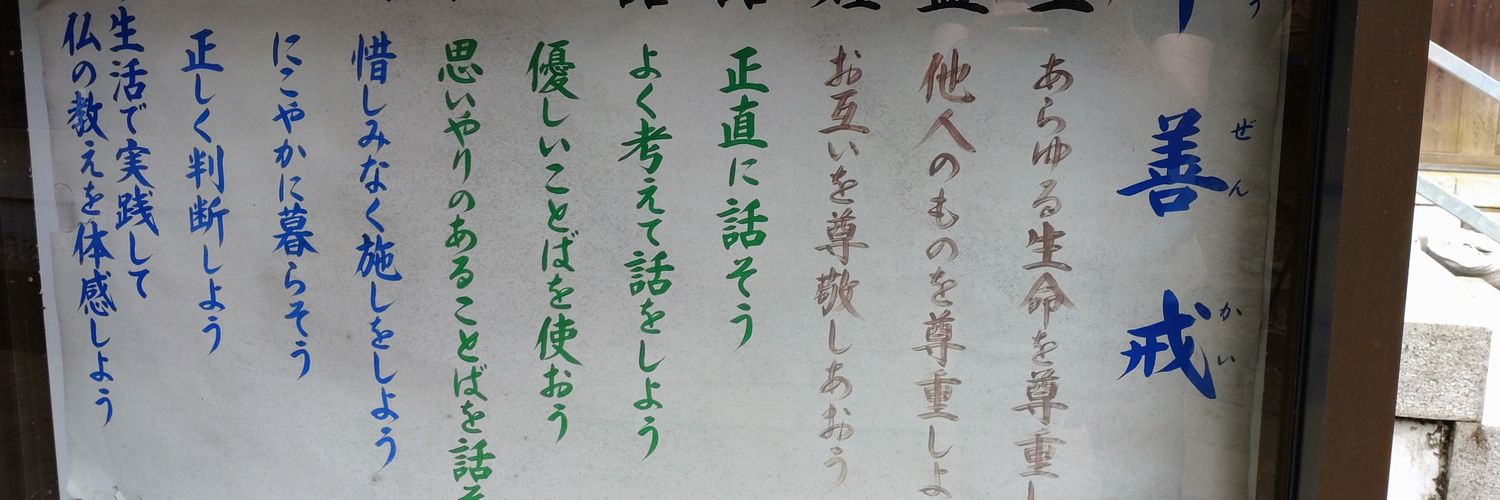 善戒
ぜんかい
あらゆる生命を尊重し
他人のものを尊重しよ
お互いを尊敬しあおう
正直に話そう
よく考えて話をしよう
優しいことばを使おう
思いやりのあることばを話そ
惜しみなく施しをしよう
にこやかに暮らそう
正しく判断しよう
生活で実践して
仏の教えを体感しよう